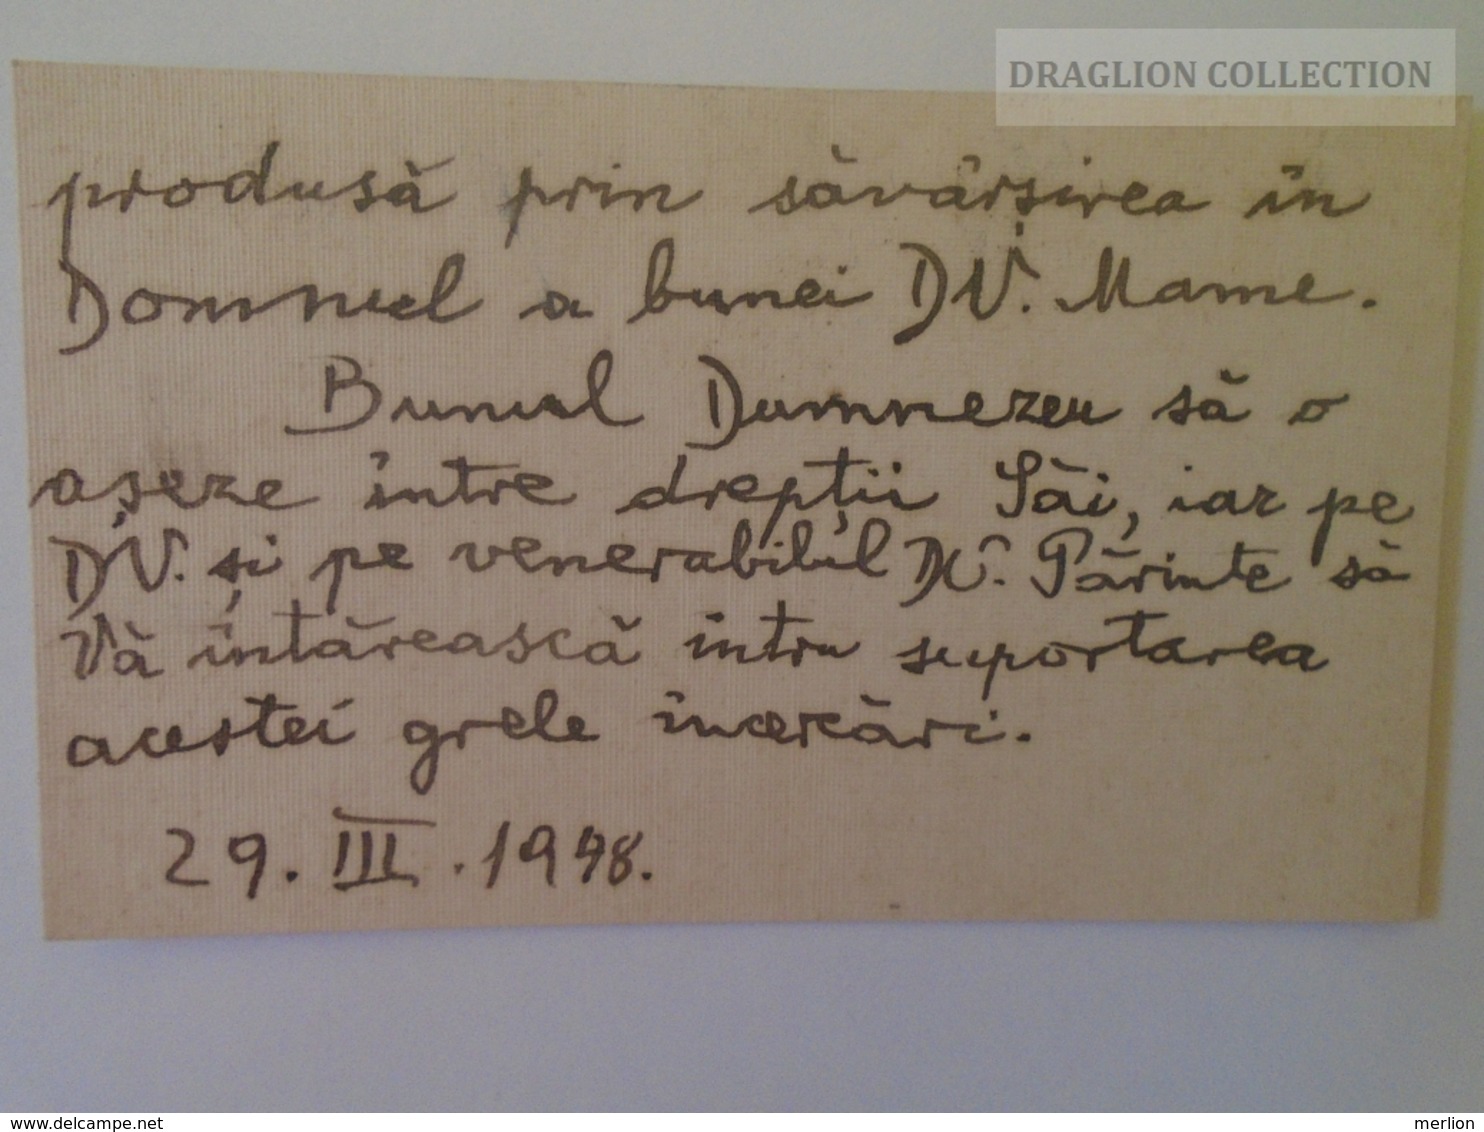 DRAGLION COLLECTION
produsă prin săvârșirea în
Domnul a bunei DV. Mame.
Bunul Dumnezeu să o
așeze între drepții Săi, iar pe
DV. și pe venerabilul DV. Părinte să
Vă întărească întru suportarea
acestei grele încercări.
29. III. 1948.
www.delcampe.net
merlion